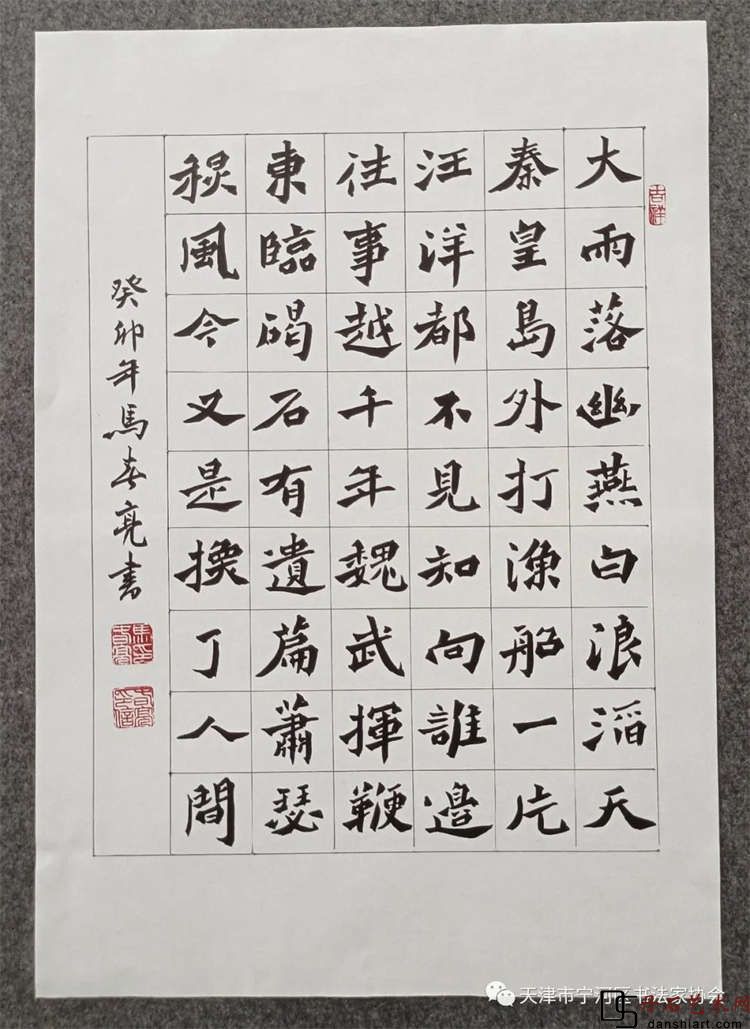 大雨落幽燕白浪滔天
秦皇島外打漁船一片
汪洋都不見知向誰邊
往事越千年魏武揮鞭
東臨碣石有遺篇蕭瑟
秋風今又是換了人間
癸卯年馬春亮書
吉祥
天津市宁河区书法家协会
danshiart.com